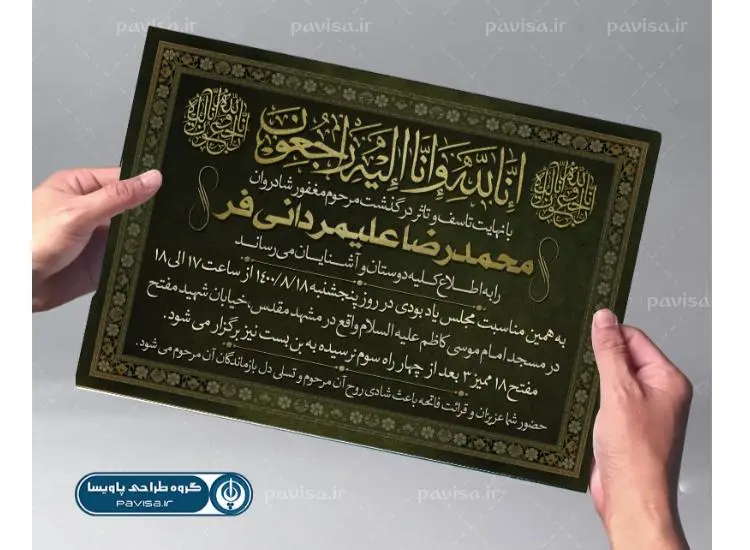 pavisa.ir pavisa.ir pavisa.ir pavisa.ir
إنا لله وإنا إليه راجعون
إنا لله وإنا إليه راجعون
إنا لله وإنا إليه راجعون
با نهایت تاسف و تاثر درگذشت مرحوم مغفور شادروان
محمدرضا علیمردانی فر
را به اطلاع کلیه دوستان و آشنایان می رساند
به همین مناسبت مجلس یادبودی در روز پنجشنبه ۱۴۰۰/۸/۱۸ از ساعت ۱۷ الی ۱۸
در مسجد امام موسی کاظم علیه السلام واقع در مشهد مقدس، خیابان شهید مفتح
مفتح ۱۸ ممیز ۳ بعد از چهار راه سوم نرسیده به بن بست نیز برگزار می شود.
حضور شما عزیزان و قرائت فاتحه باعث شادی روح آن مرحوم و تسلی دل بازماندگان آن مرحوم می شود.
pavisa.ir
گروه طراحی پاویسا
Pavisa.ir
pavisa.ir pavisa.ir pavisa.ir